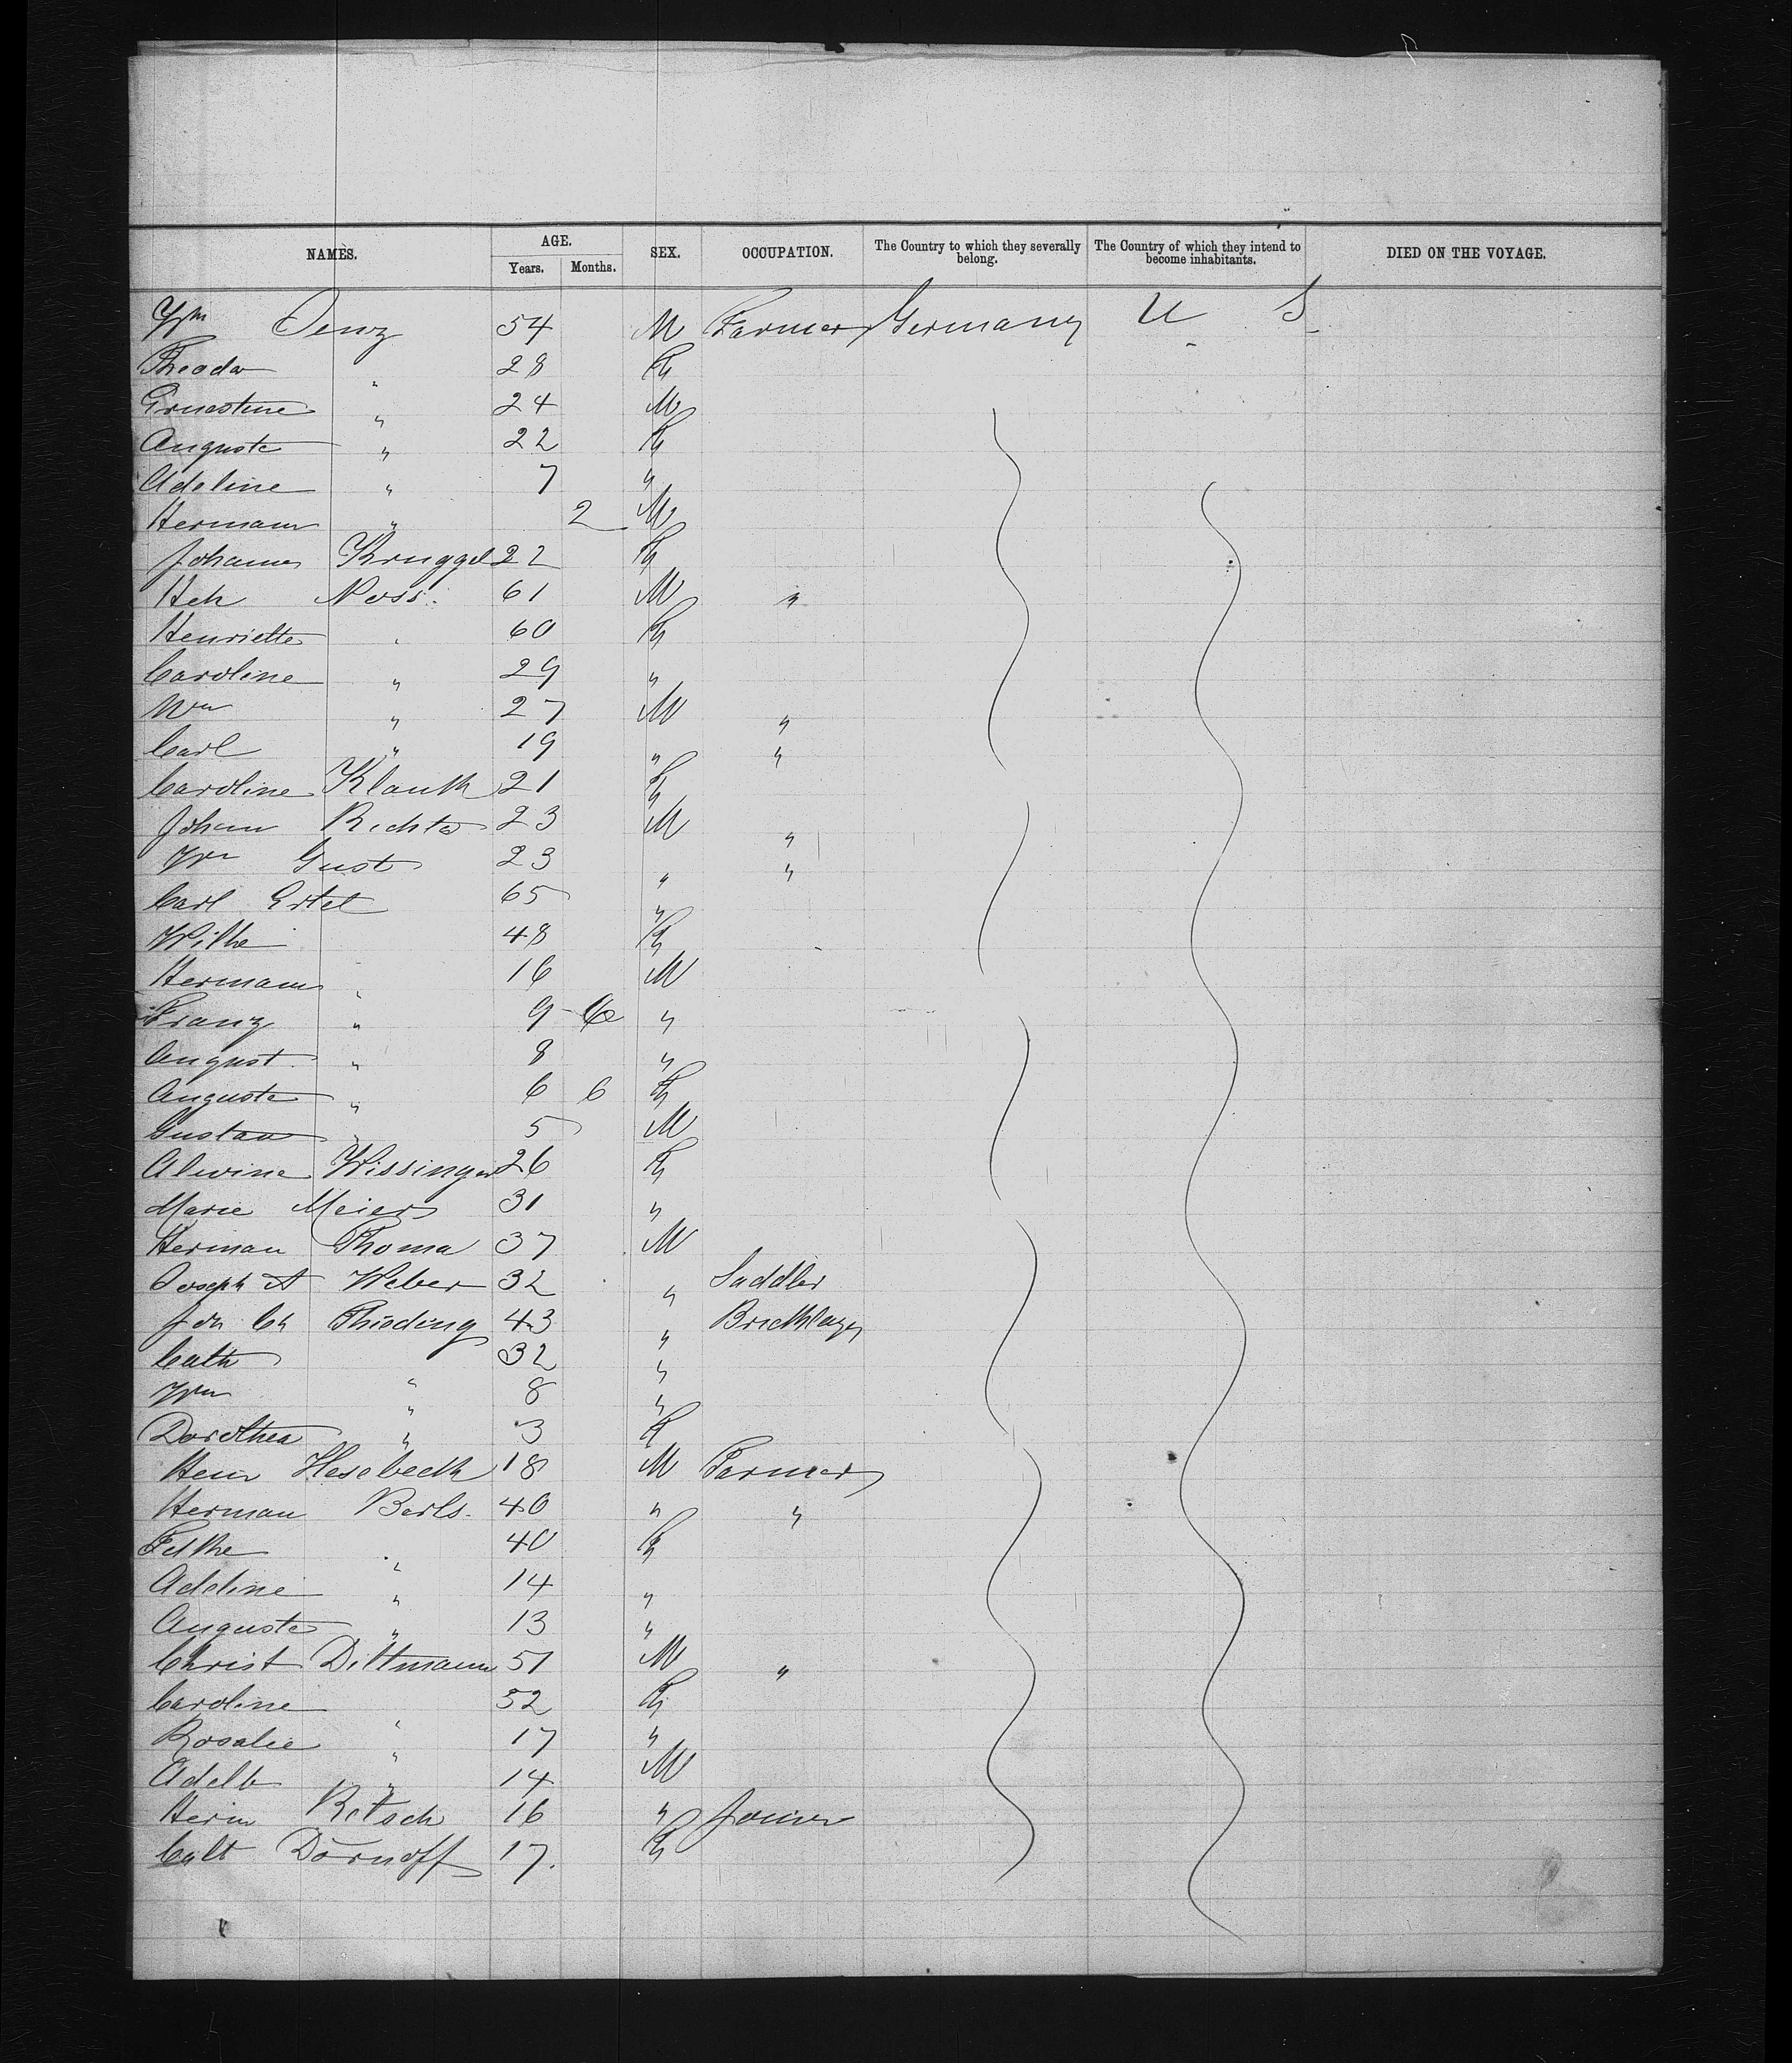 NAMES. AGE. Years. Months. SEX. OCCUPATION. The Country to which they severally belong. The Country of which they intend to become inhabitants. DIED ON THE VOYAGE.
Wm 54 M Farmer Germany U S
Theodor " 28 F
Ernestine " 24 M
Auguste " 22 F
Adeline " 7 "
Hermann " 2 M
Johannes Kruggel 22 F
Hch Noss 61 M "
Henriette " 60 F
Caroline " 29 "
Wm " 27 M "
Carl " 19 " "
Caroline Klauth 21 F
Johann Richter 23 M "
Wm Gust 23 " "
Carl Ertel 65 "
Wilhe 48 F
Hermann " 16 M
Franz " 9 6 "
August " 8 "
Auguste " 6 6 F
Gustav " 5 M
Alwine Wissinger 26 F
Marie Meier 31 "
Herman Thoma 37 M
Joseph A Weber 32 " Saddler
Joh Ch Thieding 43 " Bricklayer
Cath " 32 "
Wm " 8 "
Dorothea " 3 F
Henr Hesebeck 18 M Farmer
Herman Berls. 40 " "
" 40 F
Adeline " 14 "
Auguste " 13 "
Christ Dittmann 51 M "
Caroline 52 F
Rosalie " 17 "
Adelb " 14 M
Herm Retsch 16 " Joiner
Dörnoff 17. F